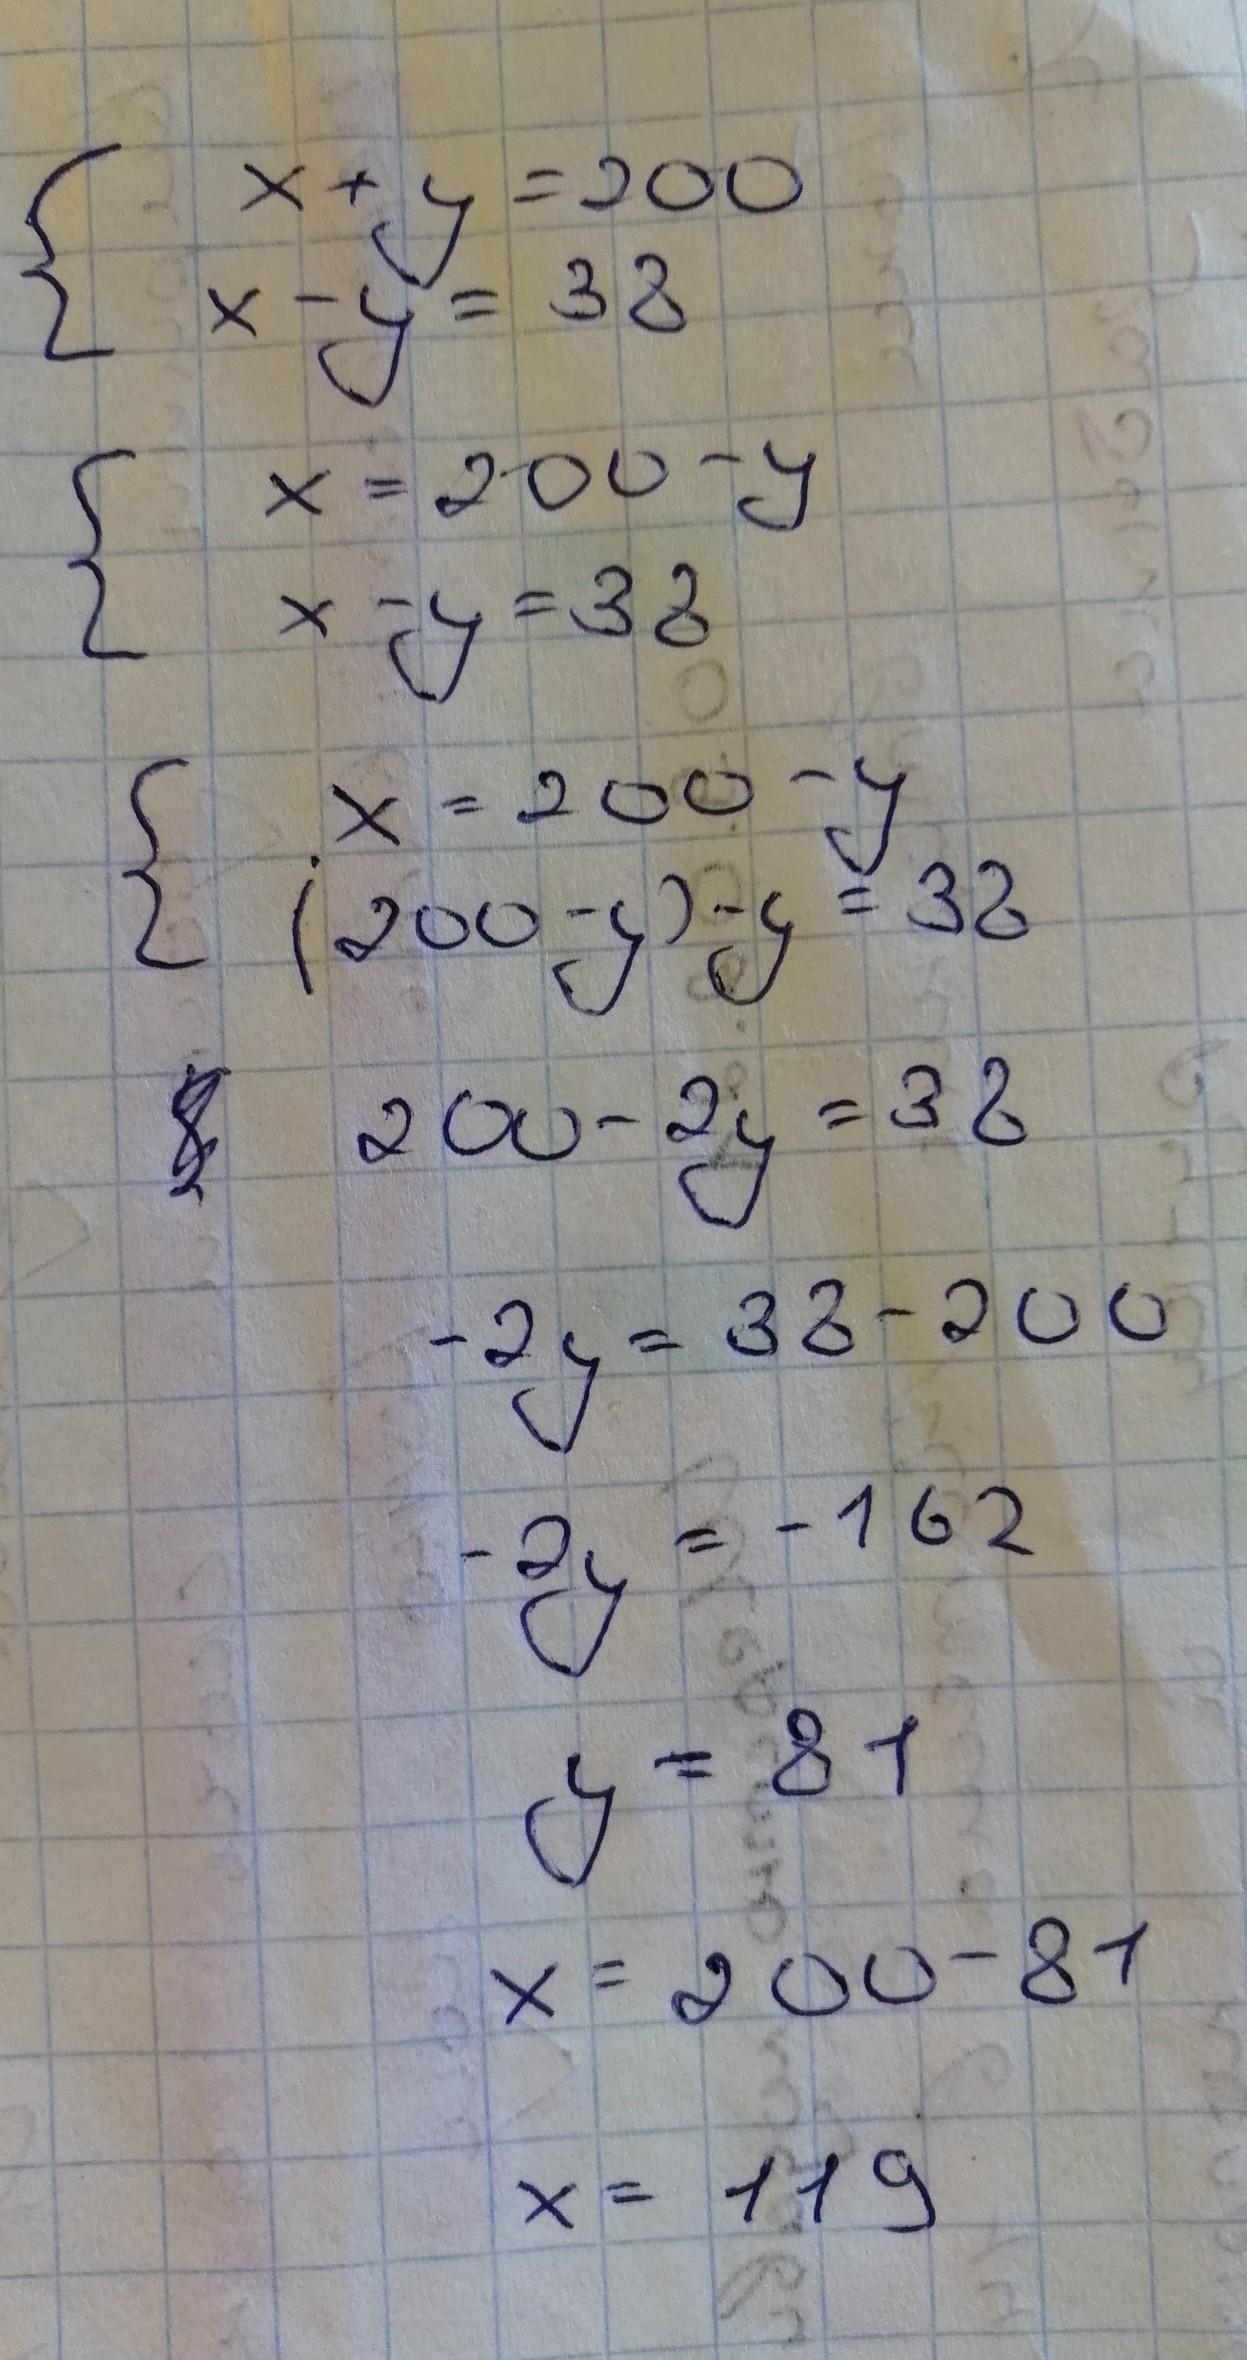 x + y = 200
x - y = 38
x = 200 - y
x - y = 38
x = 200 - y
(200 - y) - y = 38
200 - 2y = 38
-2y = 38 - 200
-2y = -162
y = 81
x = 200 - 81
x = 119